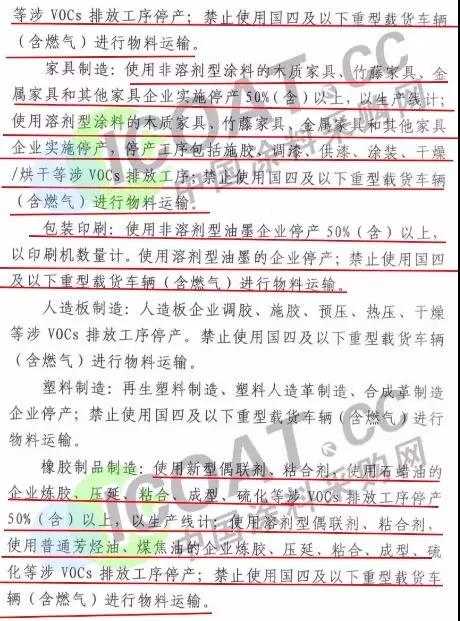 等涉 VOCs 排放工序停产；禁止使用国四及以下重型载货车辆
（含燃气）进行物料运输。
家具制造：使用非溶剂型涂料的木质家具、竹藤家具、金
属家具和其他家具企业实施停产 50%（含）以上，以生产线计；
使用溶剂型涂料的木质家具、竹藤家具、金属家具和其他家具
企业实施停产，停产工序包括施胶、调漆、供漆、涂装、干燥
/烘干等涉 VOCs 排放工序；禁止使用国四及以下重型载货车辆
（含燃气）进行物料运输。
包装印刷：使用非溶剂型油墨企业停产 50%（含）以上，
以印刷机数量计。使用溶剂型油墨的企业停产；禁止使用国四
及以下重型载货车辆（含燃气）进行物料运输。
人造板制造：人造板企业调胶、施胶、预压、热压、干燥
等涉 VOCs 排放工序停产。禁止使用国四及以下重型载货车辆
（含燃气）进行物料运输。
塑料制造：再生塑料制造、塑料人造革制造、合成革制造
企业停产；禁止使用国四及以下重型载货车辆（含燃气）进行
物料运输。
橡胶制品制造：使用新型偶联剂、粘合剂，使用石蜡油的
企业炼胶、压延、粘合、成型、硫化等涉 VOCs 排放工序停产
50%（含）以上，以生产线计；使用溶剂型偶联剂、粘合剂，
使用普通芳烃油、煤焦油的企业炼胶、压延、粘合、成型、硫
化等涉 VOCs 排放工序停产；禁止使用国四及以下重型载货车
辆（含燃气）进行物料运输。
ICOAT.CC
中国涂料采购网
ICOAT.CC
中国涂料采购网